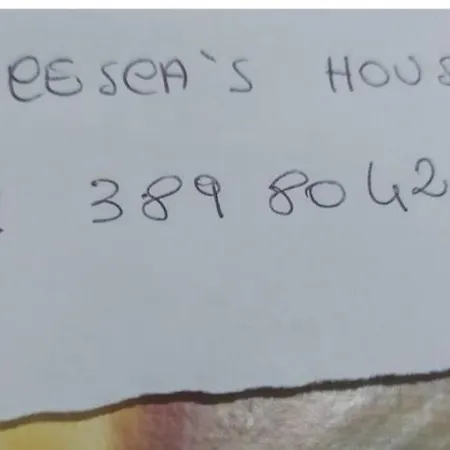 RESCA'S HOUS
389 8042